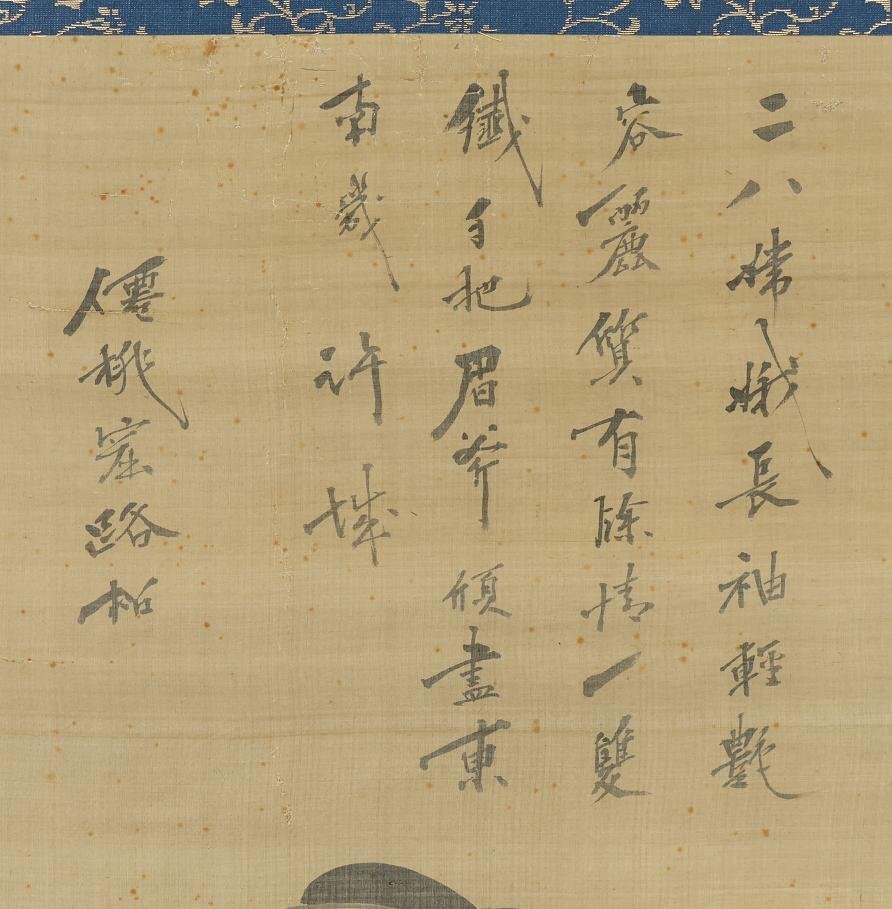 二八嫦娥長袖輕艷
容麗質有餘情一雙
纖手把眉斧傾盡東
南幾許城
僊桃窟路松